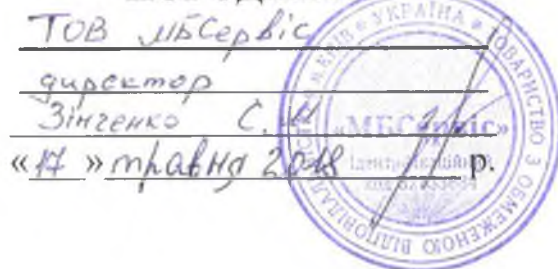 ТОВ МБСервіс
директор
Зінченко С.
«17» травня 2018 р.
УКРАЇНА * ТОВАРИСТВО З ОБМЕЖЕНОЮ ВІДПОВІДАЛ
«МБСервіс»
Ідентифікаційний
код